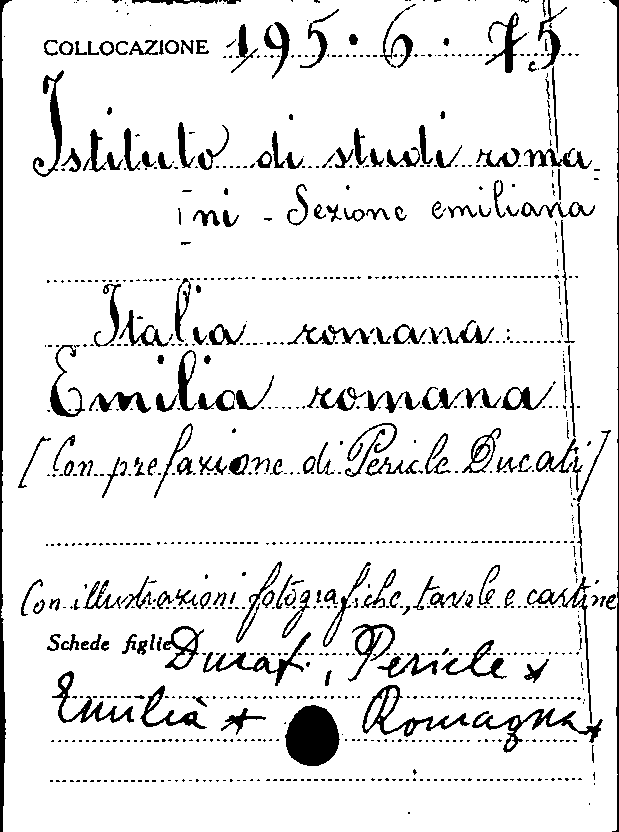 COLLOCAZIONE 195.6.75
Istituto di studi roma-
ni - Sezione emiliana
Italia romana:
Emilia romana
[Con prefazione di Pericle Ducati]
Con illustrazioni fotografiche, tavole e cartine
Schede figlie Ducati, Pericle *
Emilia * Romagna *